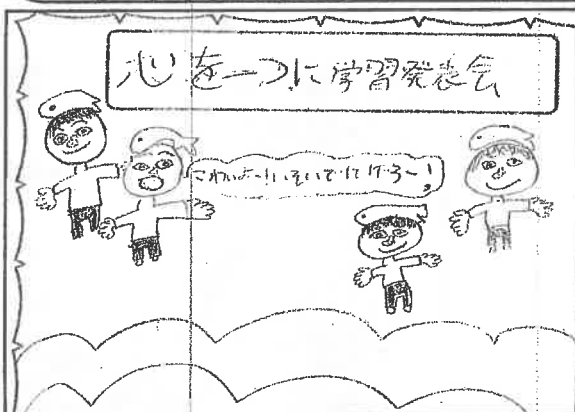 心を一つに学習発表会
こわいよー!いそいでにげろー!